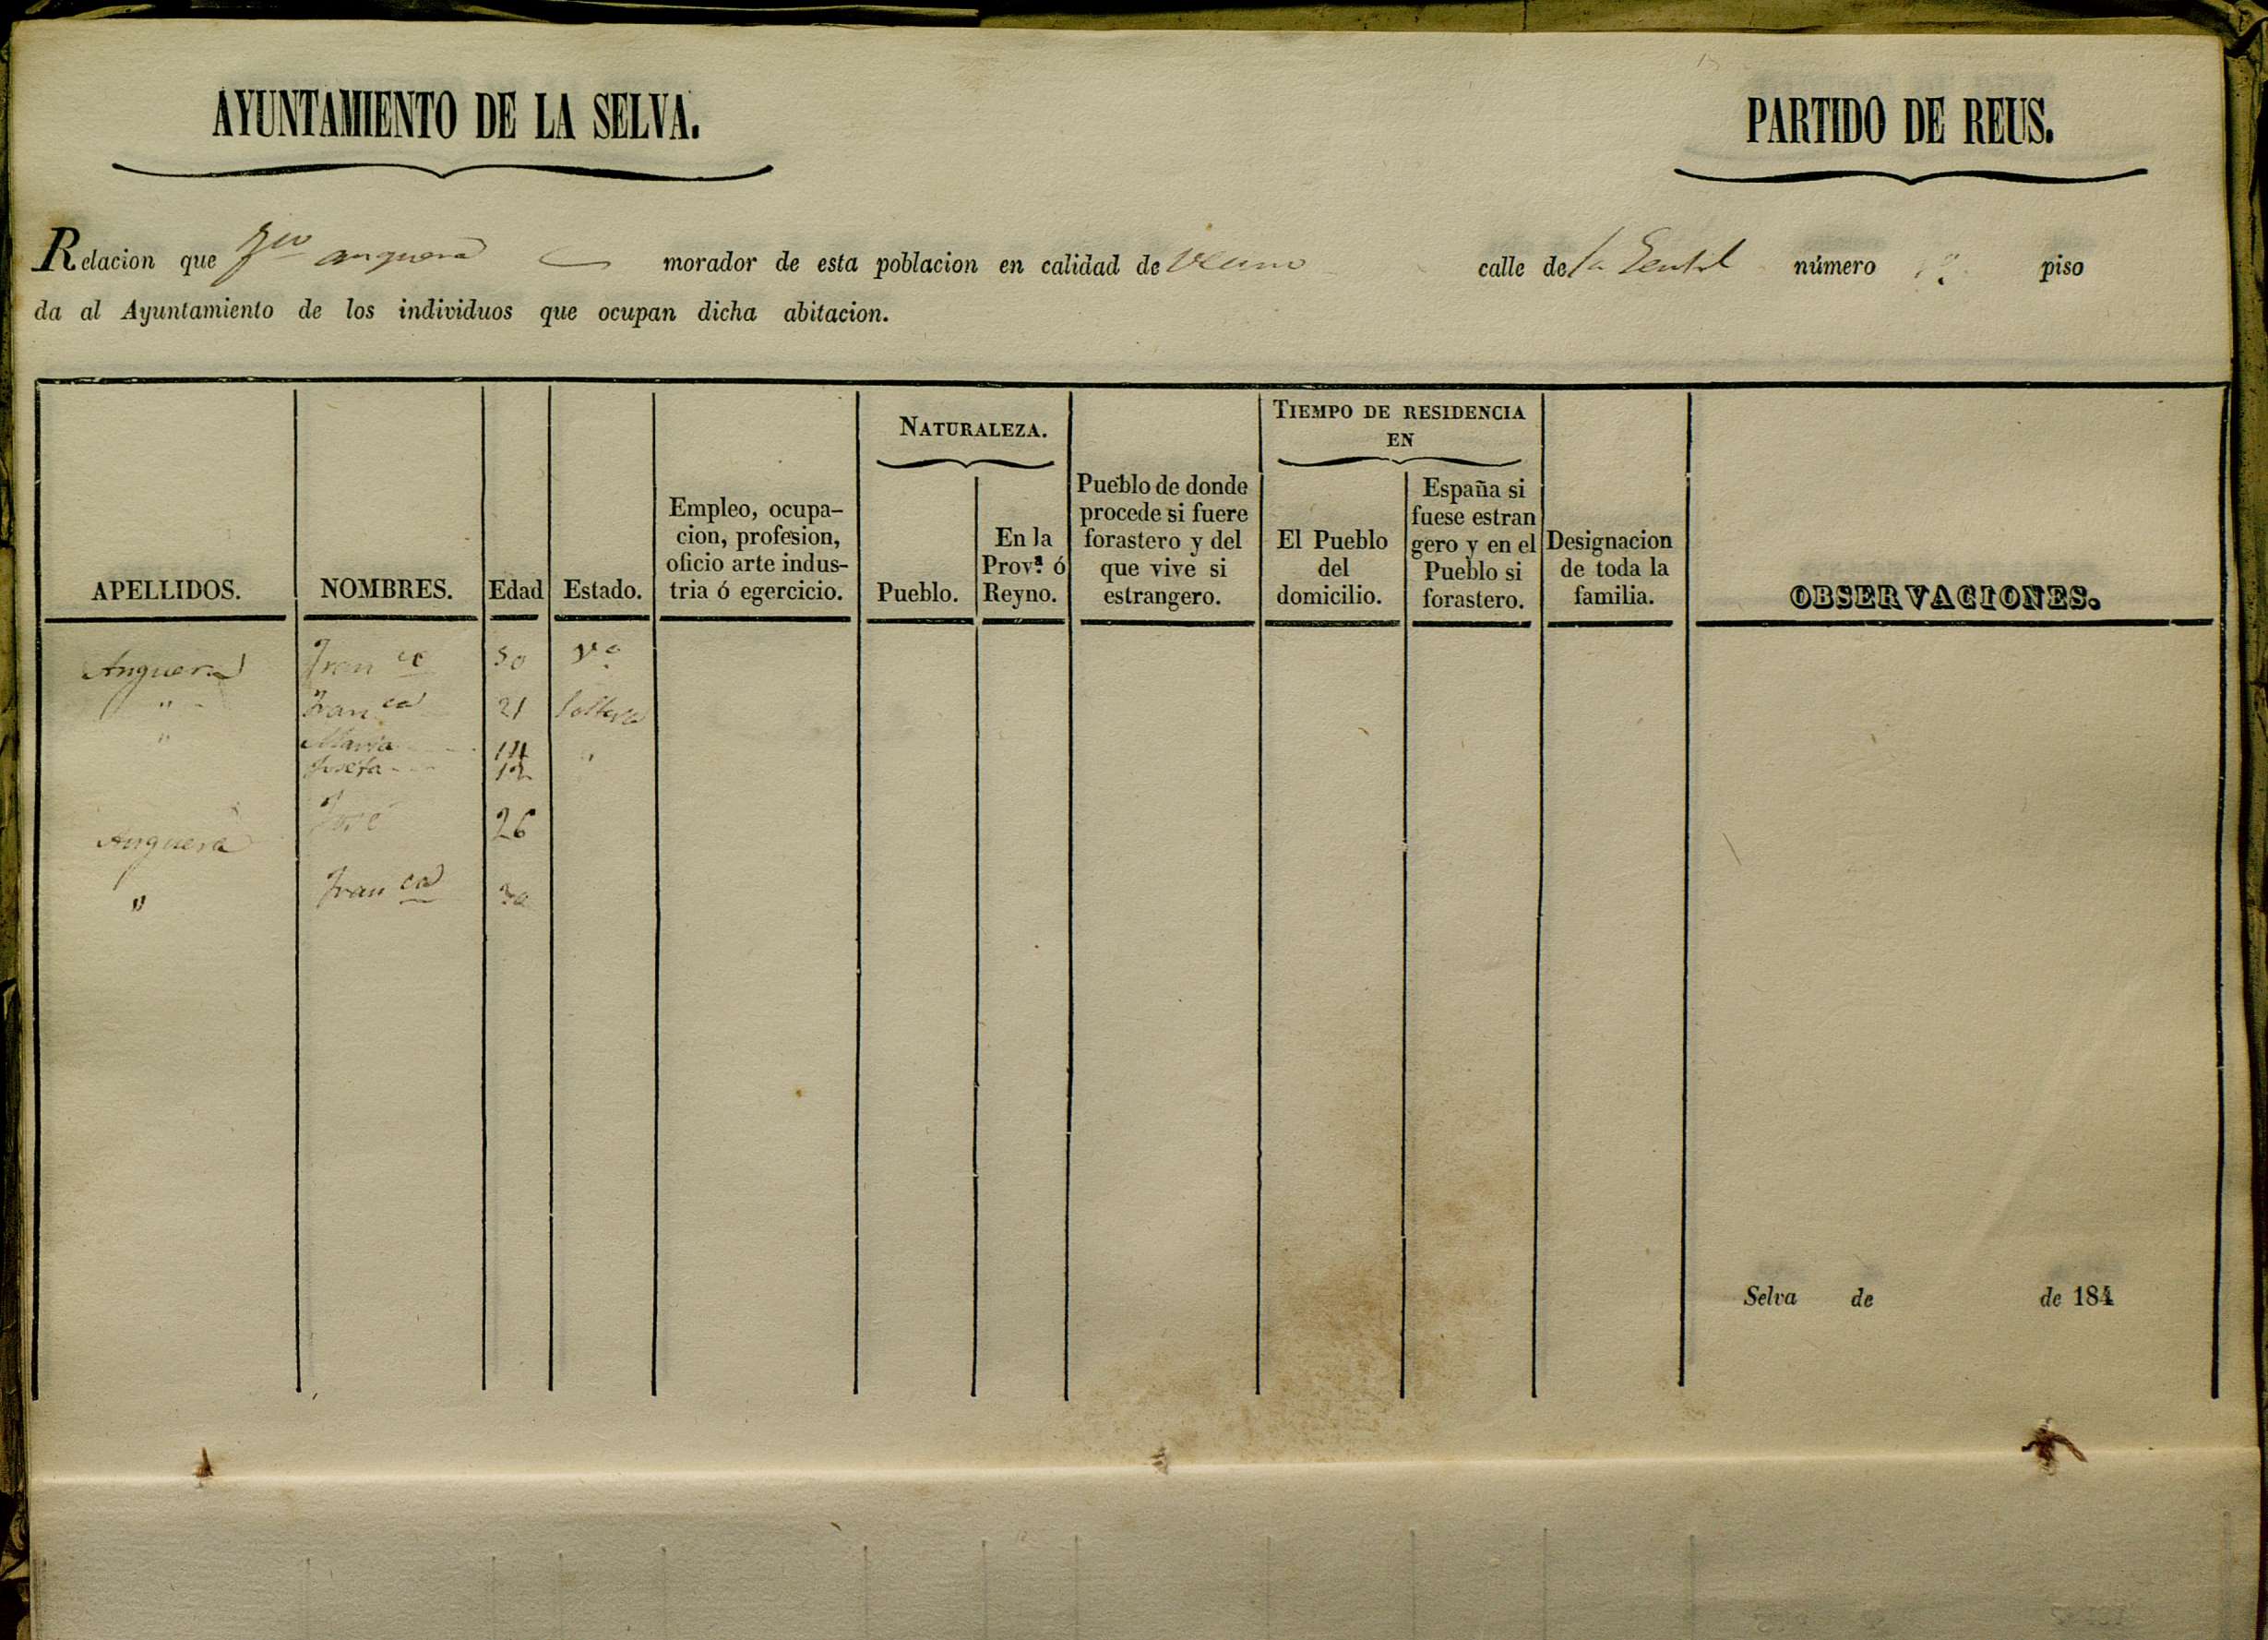 AYUNTAMIENTO DE LA SELVA.
PARTIDO DE REUS.
Relacion que anguera morador de esta poblacion en calidad de calle de la número piso
da al Ayuntamiento de los individuos que ocupan dicha abitacion.
NATURALEZA.
TIEMPO DE RESIDENCIA
EN
APELLIDOS.
NOMBRES.
Edad
Estado.
Empleo, ocupa-
cion, profesion,
oficio arte indus-
tria ó egercicio.
Pueblo.
En la
Provª ó
Reyno.
Pueblo de donde
procede si fuere
forastero y del
que vive si
estrangero.
El Pueblo
del
domicilio.
España si
fuese estran
gero y en el
Pueblo si
forastero.
Designacion
de toda la
familia.
OBSERVACIONES.
Anguera Fran co 50 Vo
" Fran ca 21 soltera
" Maria 14 "
Josefa 12
Anguera José 26
" Fran ca 30
Selva de de 184